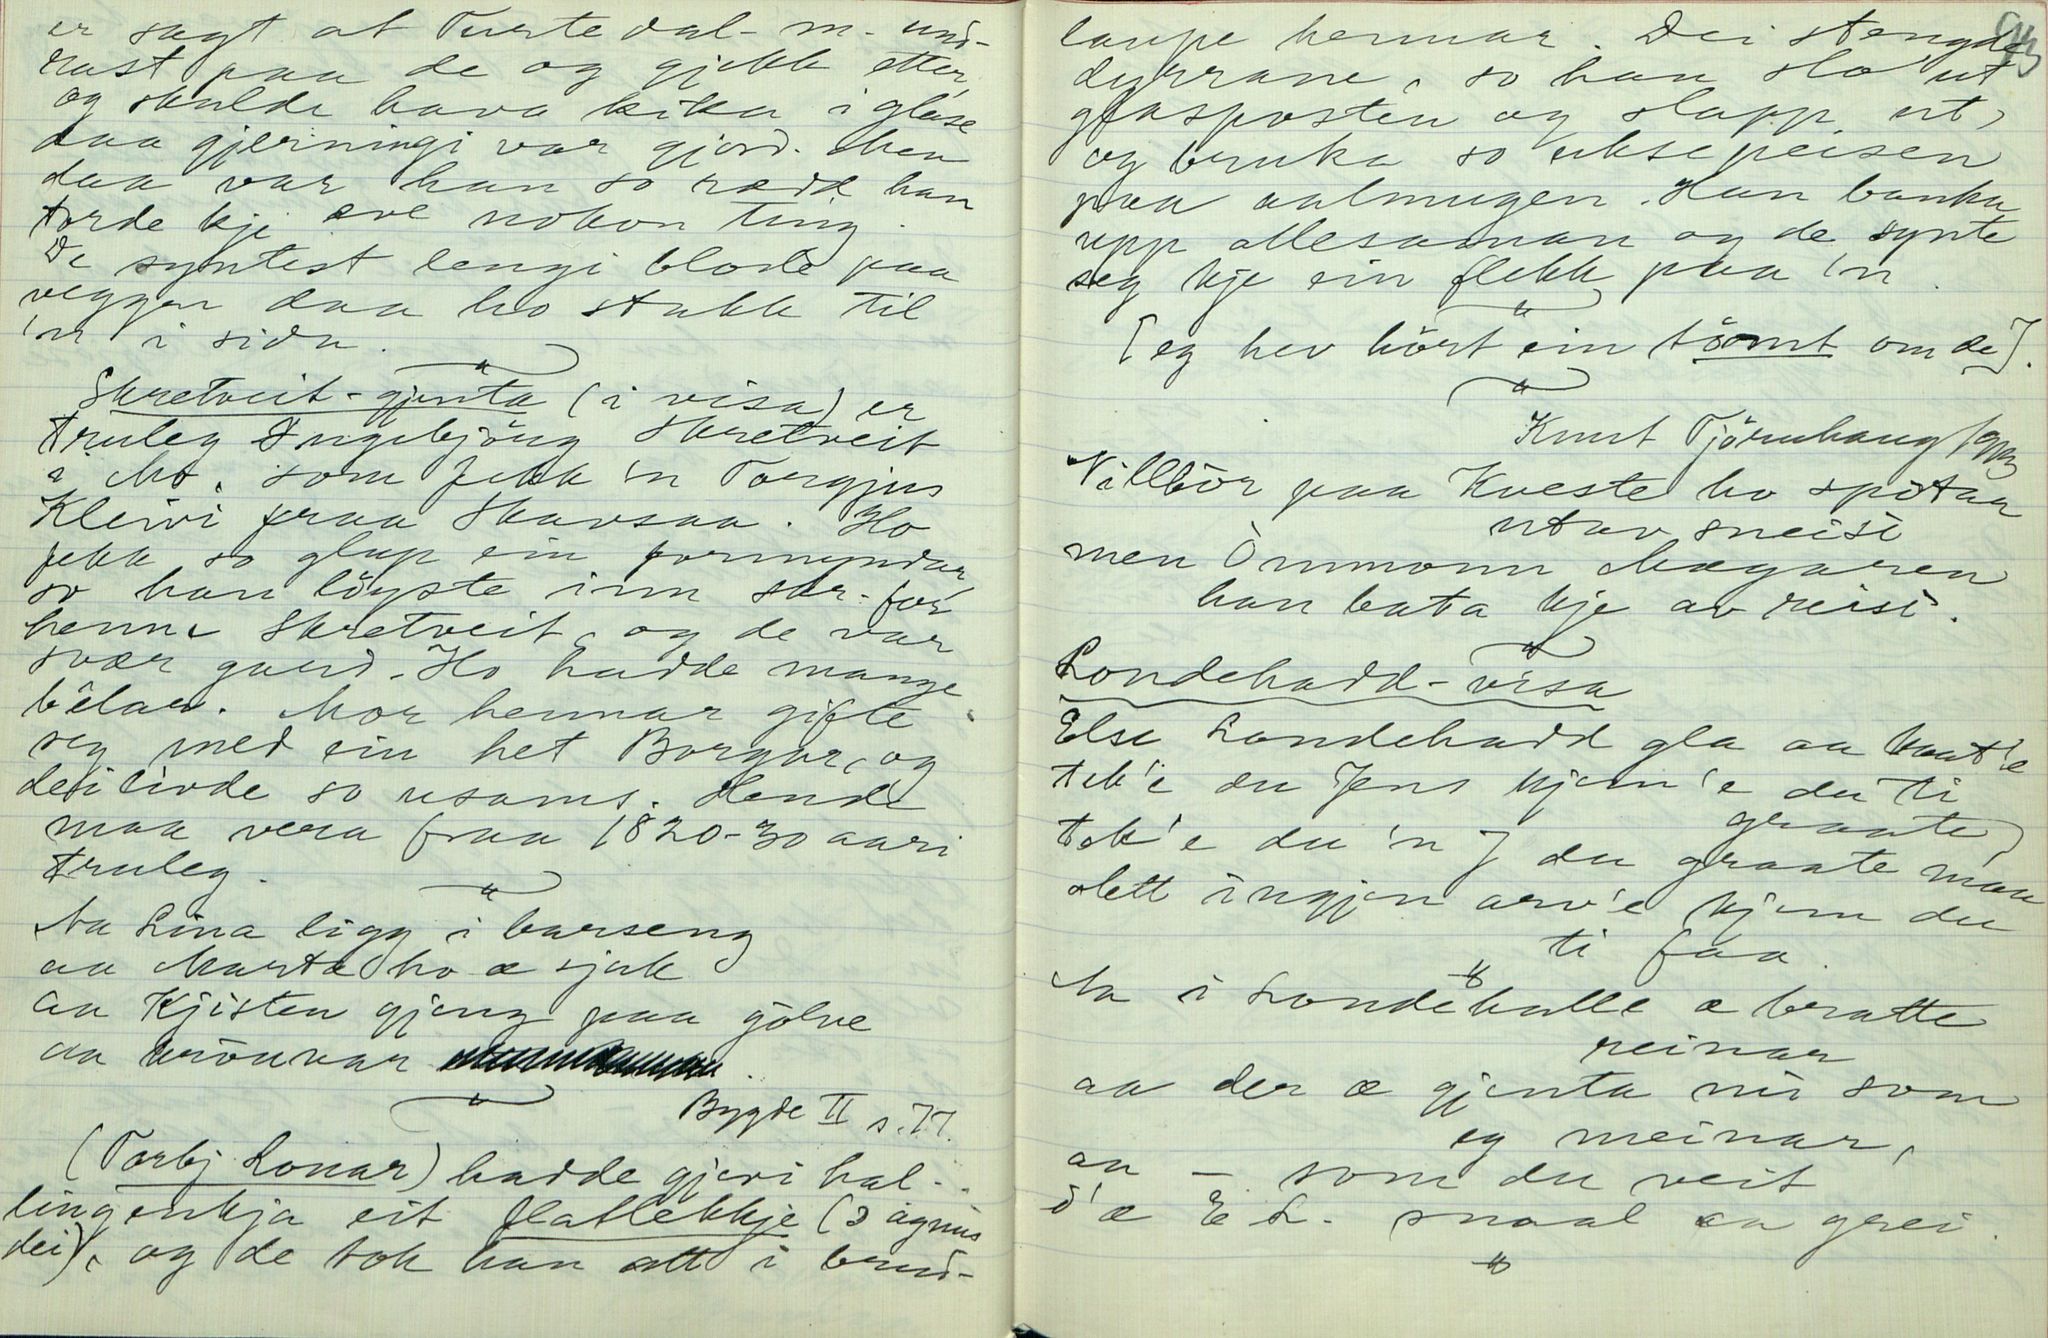 er sagt at Turtedal-m. und-
rast paa de og gjekk etter,
og skulde hava kika i glase
daa gjerningi var gjord. Men
daa var han so rædd han
torde kje øve nokon ting.
De syntest lengi blode paa
veggen daa ho stakk til
'n i sida.
Skretveit-gjenta (i visa) er
truleg Ingebjörg Skretveit
i Mo, som fekk 'n Torgjus
Kleivi fraa Skavsaa. Ho
fekk so glup ein formyndar
so han löyste inn for
henne Skretveit, og de var
svær gard. Ho hadde mange
bêlar. Mor hennar gifte
seg med ein het Borgar, og
dei livde so usams. Hende
maa vera fraa 1820-30 aari
truleg.
Aa Lina ligg i barseng
aa Marta ho æ sjuk
aa Kjisten gjeng paa gölve
aa
Bygde II s. 77.
(Torbj. Lonar) hadde gjevi hal-
lingenkja eit flatlekkje (o agnus
dei), og de tok han att i brud-
laupe hennar. Dei stengde
dyrrane, so han slo ut
glasposten og slapp ut,
og bruka so uksepeisen
paa aalmugen. Han banka
upp allesaman og de synte
seg kje ein flekk paa 'n.
[eg hev hört ein tömt om de].
Knut Tjörnhaug
Villbör paa Kveste ho spötar
utav sneisi
men Ommonn Magaren
han bata kje av reisi.
Londehadd-visa
Else Londehadd gla aa kaat'e
tek'e du Jens kjem'e du ti
graate,
tek'e du 'n J du graate maa
slett ingjen arv'e kjem du
ti faa.
Aa i Londehalle æ bratte
reinar
aa der æ gjenta mi som
eg meinar,
aa — som du veit
d'æ E L. snaal aa grei.